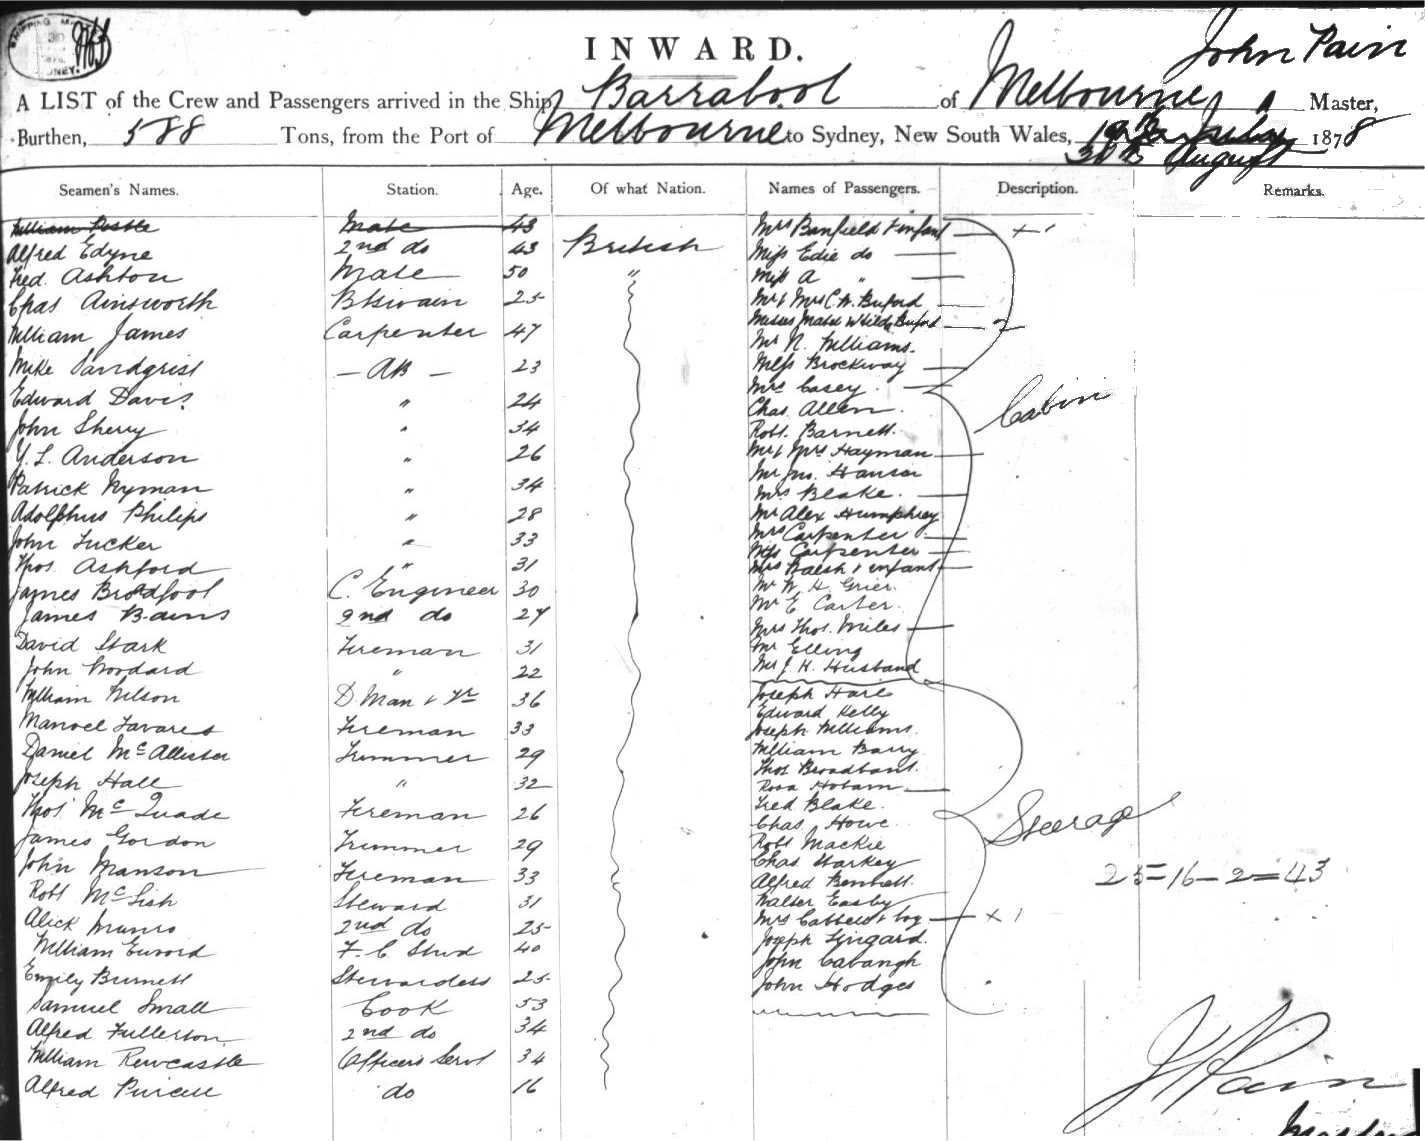 John Pain
INWARD.
A LIST of the Crew and Passengers arrived in the Ship Barrabool of Melbourne Master,
Burthen, 588 Tons, from the Port of Melbourne to Sydney, New South Wales, 30th August 1878
Seamen's Names. Station. Age. Of what Nation. Names of Passengers. Description. Remarks.
William Postle Mate 43 Mrs Banfield & infant
Alfred Edyne 2nd do 43 British Miss Edie do
Fred. Ashton Mate 50 " Miss A "
Chas Ainsworth Btswain 25 Mr & Mrs C. W. Buford
Misses Mabel & Hilda Buford
William James Carpenter 47 Mr N. Williams.
Mike 23 Miss Brockway
AB Mrs Casey
Edward Davis 24 Chas. Allen Cabin
John Sherry " 34 Robt. Barnett
Y. L. Anderson " 26 Mr & Mrs Hayman
Mr Jno. Hansor
Patrick Nyman " 34 Mrs Blake
Adolphus Philips " 28 Mr Alex Humphrey
John Tucker " 33 Mrs Carpenter
Miss Carpenter
Thos. Ashford " 31 Mrs Walsh & infant
James Broadfoot C. Engineer 30 Mr W. H. Grier
James Bains 2nd do 27 Mr E. Carter
Mrs Thos. Miles
David Stark Fireman 31 Mr Elling
John Woodard " 22 Mr J. H. Husband
William Wilson D Man & Yr 36 Joseph Hare
Edward Kelly
Manoel Tavares Fireman 33 Joseph Williams
Daniel McAllister Trimmer 29 William Barry
Thos Broadbant
Joseph Hall " 32 Rosa Hobam
Thos McQuade Fireman 26 Fred Blake
Chas Howe Steerage
James Gordon Trimmer 29 Robt Mackie
John Manson Fireman 33 Chas Starkey 25=16-2=43
Alfred Bennett
Robt McLish Steward 31 Walter Easby
Alick Munro 2nd do 25 Mrs & boy
William 40 Joseph Lingard
F. C Stwd John Cavangh
Emily Burnett Stewardess 25 John Hodges
Samuel Small Cook 53
Alfred Fullerton 2nd do 34
William Rewcastle Officers Servt 34
Alfred Purcell do 16
J Pain